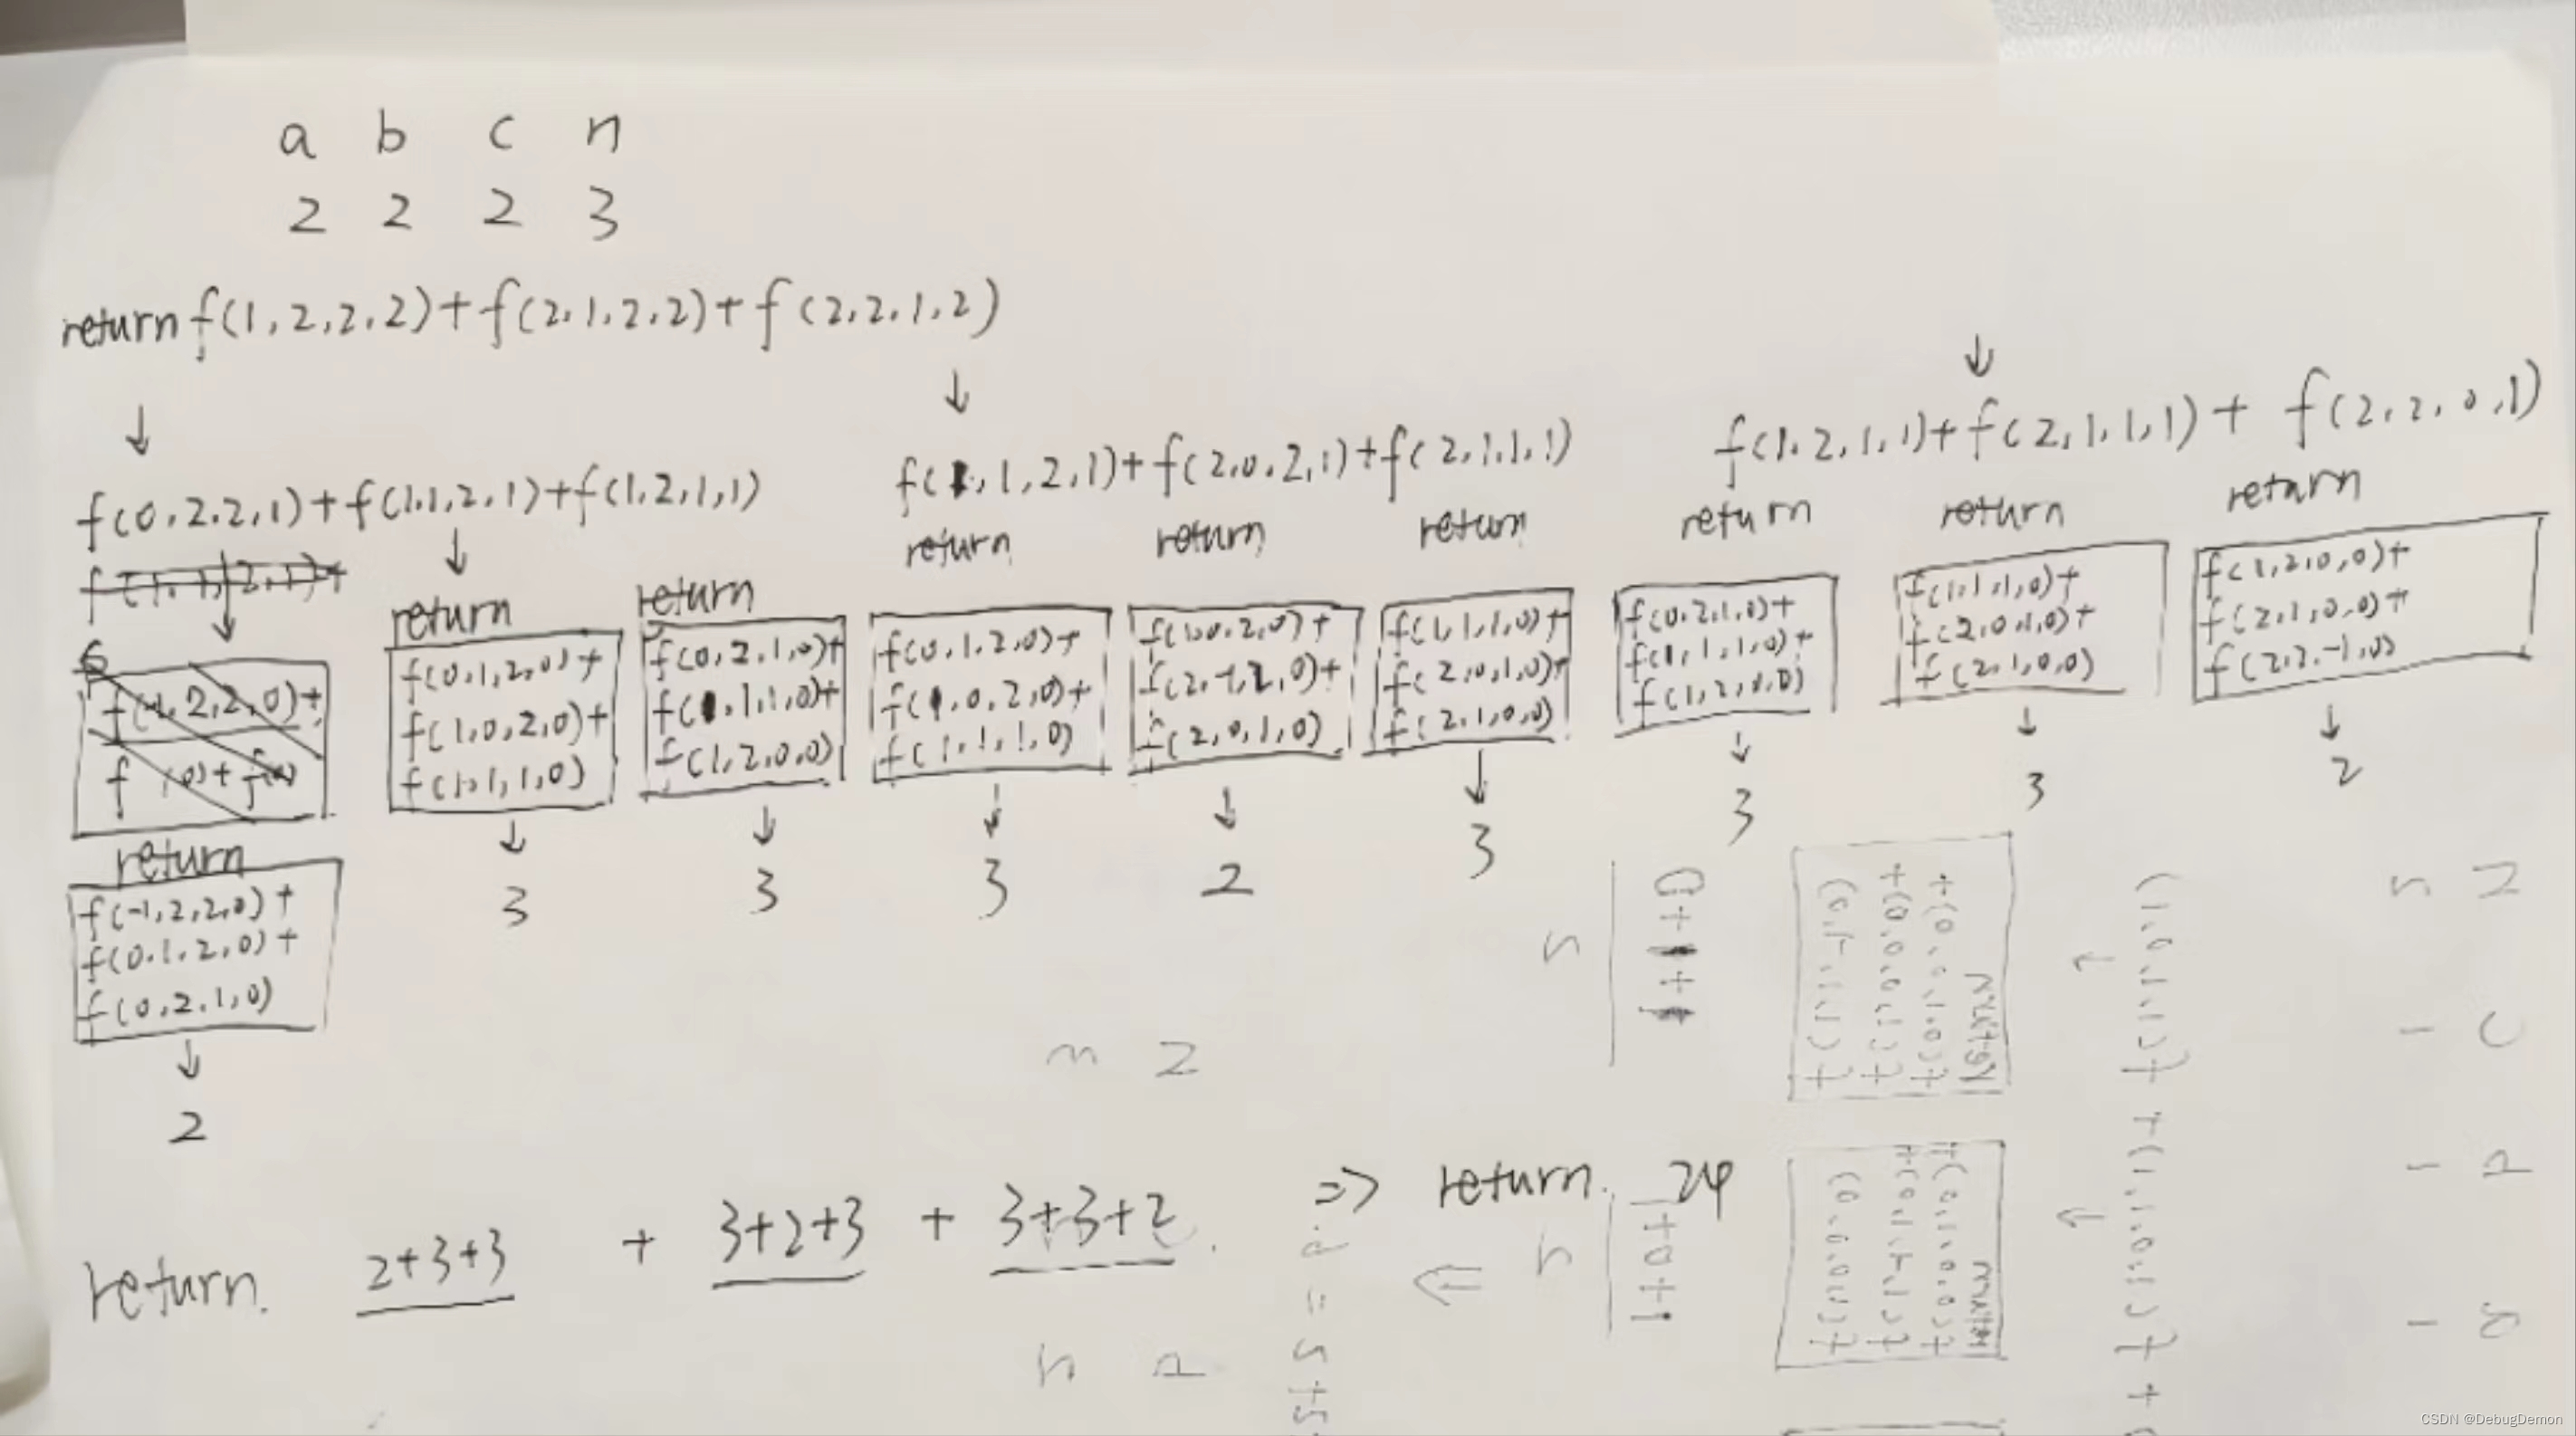 a b c n
2 2 2 3
return f(1,2,2,2)+f(2,1,2,2)+f(2,2,1,2)
↓ ↓ ↓
f(0,2,2,1)+f(1,1,2,1)+f(1,2,1,1)
f(1,1,2,1)+f(2,0,2,1)+f(2,1,1,1)
f(1,2,1,1)+f(2,1,1,1)+f(2,2,0,1)
return
f(-1,2,2,0)+
f(0,1,2,0)+
f(0,2,1,0)
↓
2
return
f(0,1,2,0)+
f(1,0,2,0)+
f(1,1,1,0)
↓
3
return
f(0,2,1,0)+
f(1,1,1,0)+
f(1,2,0,0)
↓
3
return
f(0,1,2,0)+
f(1,0,2,0)+
f(1,1,1,0)
↓
3
return
f(1,0,2,0)+
f(2,-1,2,0)+
f(2,0,1,0)
↓
2
return
f(1,1,1,0)+
f(2,0,1,0)+
f(2,1,0,0)
↓
3
return
f(0,2,1,0)+
f(1,1,1,0)+
f(1,2,0,0)
↓
3
return
f(1,1,1,0)+
f(2,0,1,0)+
f(2,1,0,0)
↓
3
return
f(1,2,0,0)+
f(2,1,0,0)+
f(2,2,-1,0)
↓
2
return. 2+3+3 + 3+2+3 + 3+3+2. => return. 24
CSDN @DebugDemon